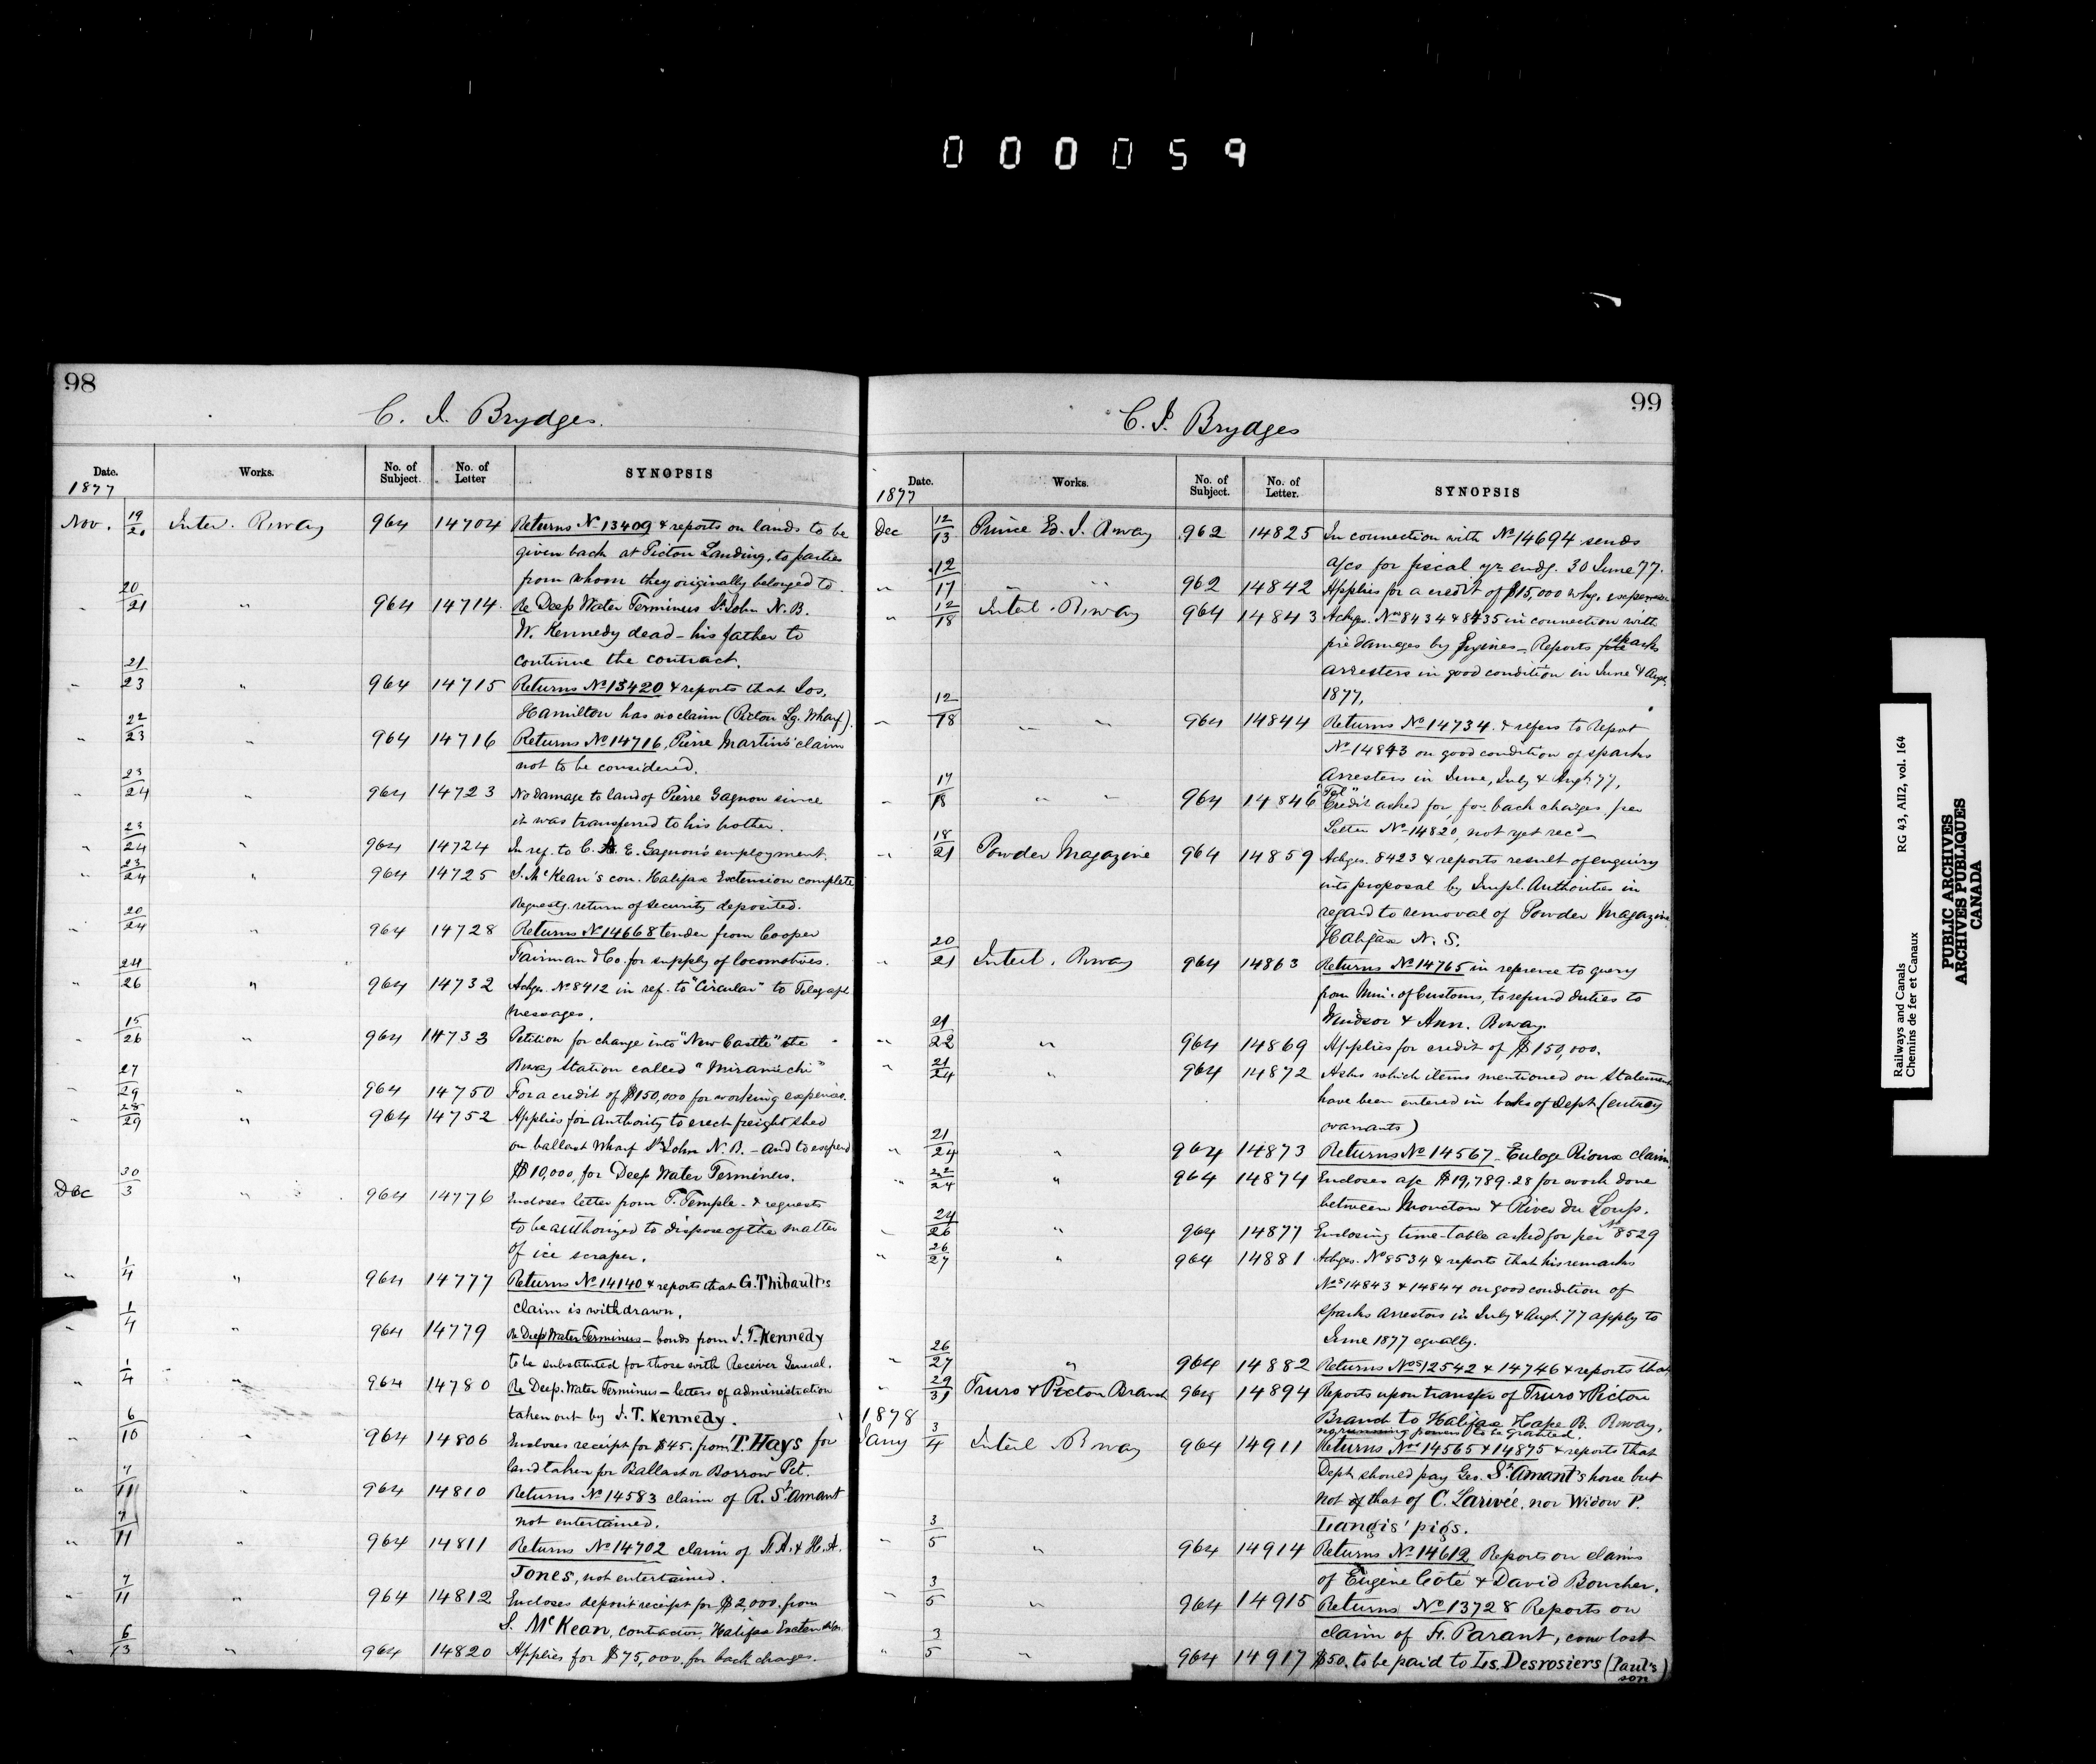 000059
98
C. J. Brydges.
Date. Works. No. of Subject. No. of Letter SYNOPSIS
1877
Nov. 19/20 Inter. Rway 964 14704 Returns No 13409 & reports on lands to be
given back at Pictou Landing, to parties
from whom they originally belonged to.
" 20/21 " 964 14714 Re Deep Water Terminus St. John N.B.
W. Kennedy dead - his father to
continue the contract.
" 21/23 " 964 14715 Returns No 13420 & reports that Jos.
Hamilton has no claim (Pictou Lg. Wharf).
" 22/23 " 964 14716 Returns No 14716, Pierre Martin's claim
not to be considered.
" 23/24 " 964 14723 No damage to land of Pierre Gagnon since
it was transferred to his brother.
" 23/24 " 964 14724 In ref. to C. A. E. Gagnon's employment.
" 23/24 " 964 14725 S. McKean's con. Halifax Extension complete
Requestg. return of security deposited.
" 20/24 " 964 14728 Returns No 14668 tender from Cooper
Fairman & Co. for supply of locomotives.
" 24/26 " 964 14732 Ackgs. No 8412 in ref. to "Circular" to Telegraph
messages.
" 15/26 " 964 14733 Petition for change into "New Castle" the
Rway Station called "Miramichi"
" 27/29 " 964 14750 For a credit of $150,000 for working expenses.
" 28/29 " 964 14752 Applies for Authority to erect freight shed
on ballast Wharf St. John N.B. - and to expend
$10,000, for Deep Water Terminus.
Dec 30/3 " 964 14776 Encloses letter from T. Temple - & requests
to be authorized to dispose of the matter
of ice scraper.
" 1/4 " 964 14777 Returns No 14140 & reports that G. Thibault's
claim is withdrawn.
" 1/4 " 964 14779 Re Deep Water Terminus - bonds from J. T. Kennedy
to be substituted for those with Receiver General.
" 1/4 " 964 14780 Re Deep. Water Terminus - letters of administration
taken out by J. T. Kennedy.
" 6/10 " 964 14806 Encloses receipt for $45. from T. Hays for
land taken for Ballast or Borrow Pit.
" 7/11 " 964 14810 Returns No 14583 claim of R. St. Amant
not entertained.
" 7/11 " 964 14811 Returns No 14702 claim of & H. A.
Jones, not entertained.
" 7/11 " 964 14812 Encloses deposit receipt for $2,000. from
S. McKean, contractor, Halifax Extension.
" 6/13 " 964 14820 Applies for $75,000. for back charges.
99
C. J. Brydges
Date. Works. No. of Subject. No. of Letter. SYNOPSIS
1877
Dec 12/13 Prince Ed. I. Rway 962 14825 In connection with No 14694 sends
a/cs for fiscal yr. endg. 30 June 77.
" 12/17 " " 962 14842 Applies for a credit of $15,000 wkg. expenses
" 12/18 Interl. Rway 964 14843 Ackgs. Nos 8434 & 8435 in connection with
fire damages by Engines - Reports spark
arresters in good condition in June & Augt.
1877.
" 12/18 " " 964 14844 Returns No 14734. & refers to Report
No 14843 on good condition of sparks
Arresters in June, July & Augt 77.
" 17/18 " " 964 14846 "Tel" Credit asked for, for back charges per
Letter No 14820, not yet recd
" 18/21 Powder Magazine 964 14859 Ackgs. 8423 & reports result of enquiry
into proposal by Impl. Authorities in
regard to removal of Powder Magazine
Halifax N. S.
" 20/21 Interl. Rway 964 14863 Returns No 14765 in reference to query
from Min. of Customs, to refund duties to
Windsor & Ann. Rway.
" 21/22 " 964 14869 Applies for credit of $150,000.
" 21/24 " 964 14872 Asks which items mentioned on Statement
have been entered in books of Dept (entry
warrants)
" 21/24 " 964 14873 Returns No 14567 - Euloge Rioux claim.
" 22/24 " 964 14874 Encloses a/c $19,789.28 for work done
between Moncton & River du Loup.
" 24/26 " 964 14877 Enclosing time-table asked for per No 8529
" 26/27 " 964 14881 Ackges. No 8534 & reports that his remarks
Nos 14843 & 14844 on good condition of
sparks arrestors in July & Augt. 77 apply to
June 1877 equally.
" 26/27 " 964 14882 Returns Nos 12542 & 14746 & reports that
" 29/31 Truro & Pictou Branch 964 14894 Reports upon transfer of Truro & Pictou
Branch to Halifax Hape R. Rway,
no running powers to be granted.
1878
Jany 3/4 Interl Rway 964 14911 Returns Nos 14565 & 14875 & reports that
Dept should pay Geo. St. Amant's horse but
not of that of C. Larivée, nor Widow P.
Langis' pigs.
" 3/5 " 964 14914 Returns No 14612 Reports on claims
of Eugène Côté & David Boucher.
" 3/5 " 964 14915 Returns No 13728 Reports on
claim of F. Parant, cow lost
" 3/5 " 964 14917 $50. to be paid to Ls. Desrosiers (Paul's
son)
Railways and Canals RG 43, AII2, vol. 164
Chemins de fer et Canaux
PUBLIC ARCHIVES
ARCHIVES PUBLIQUES
CANADA